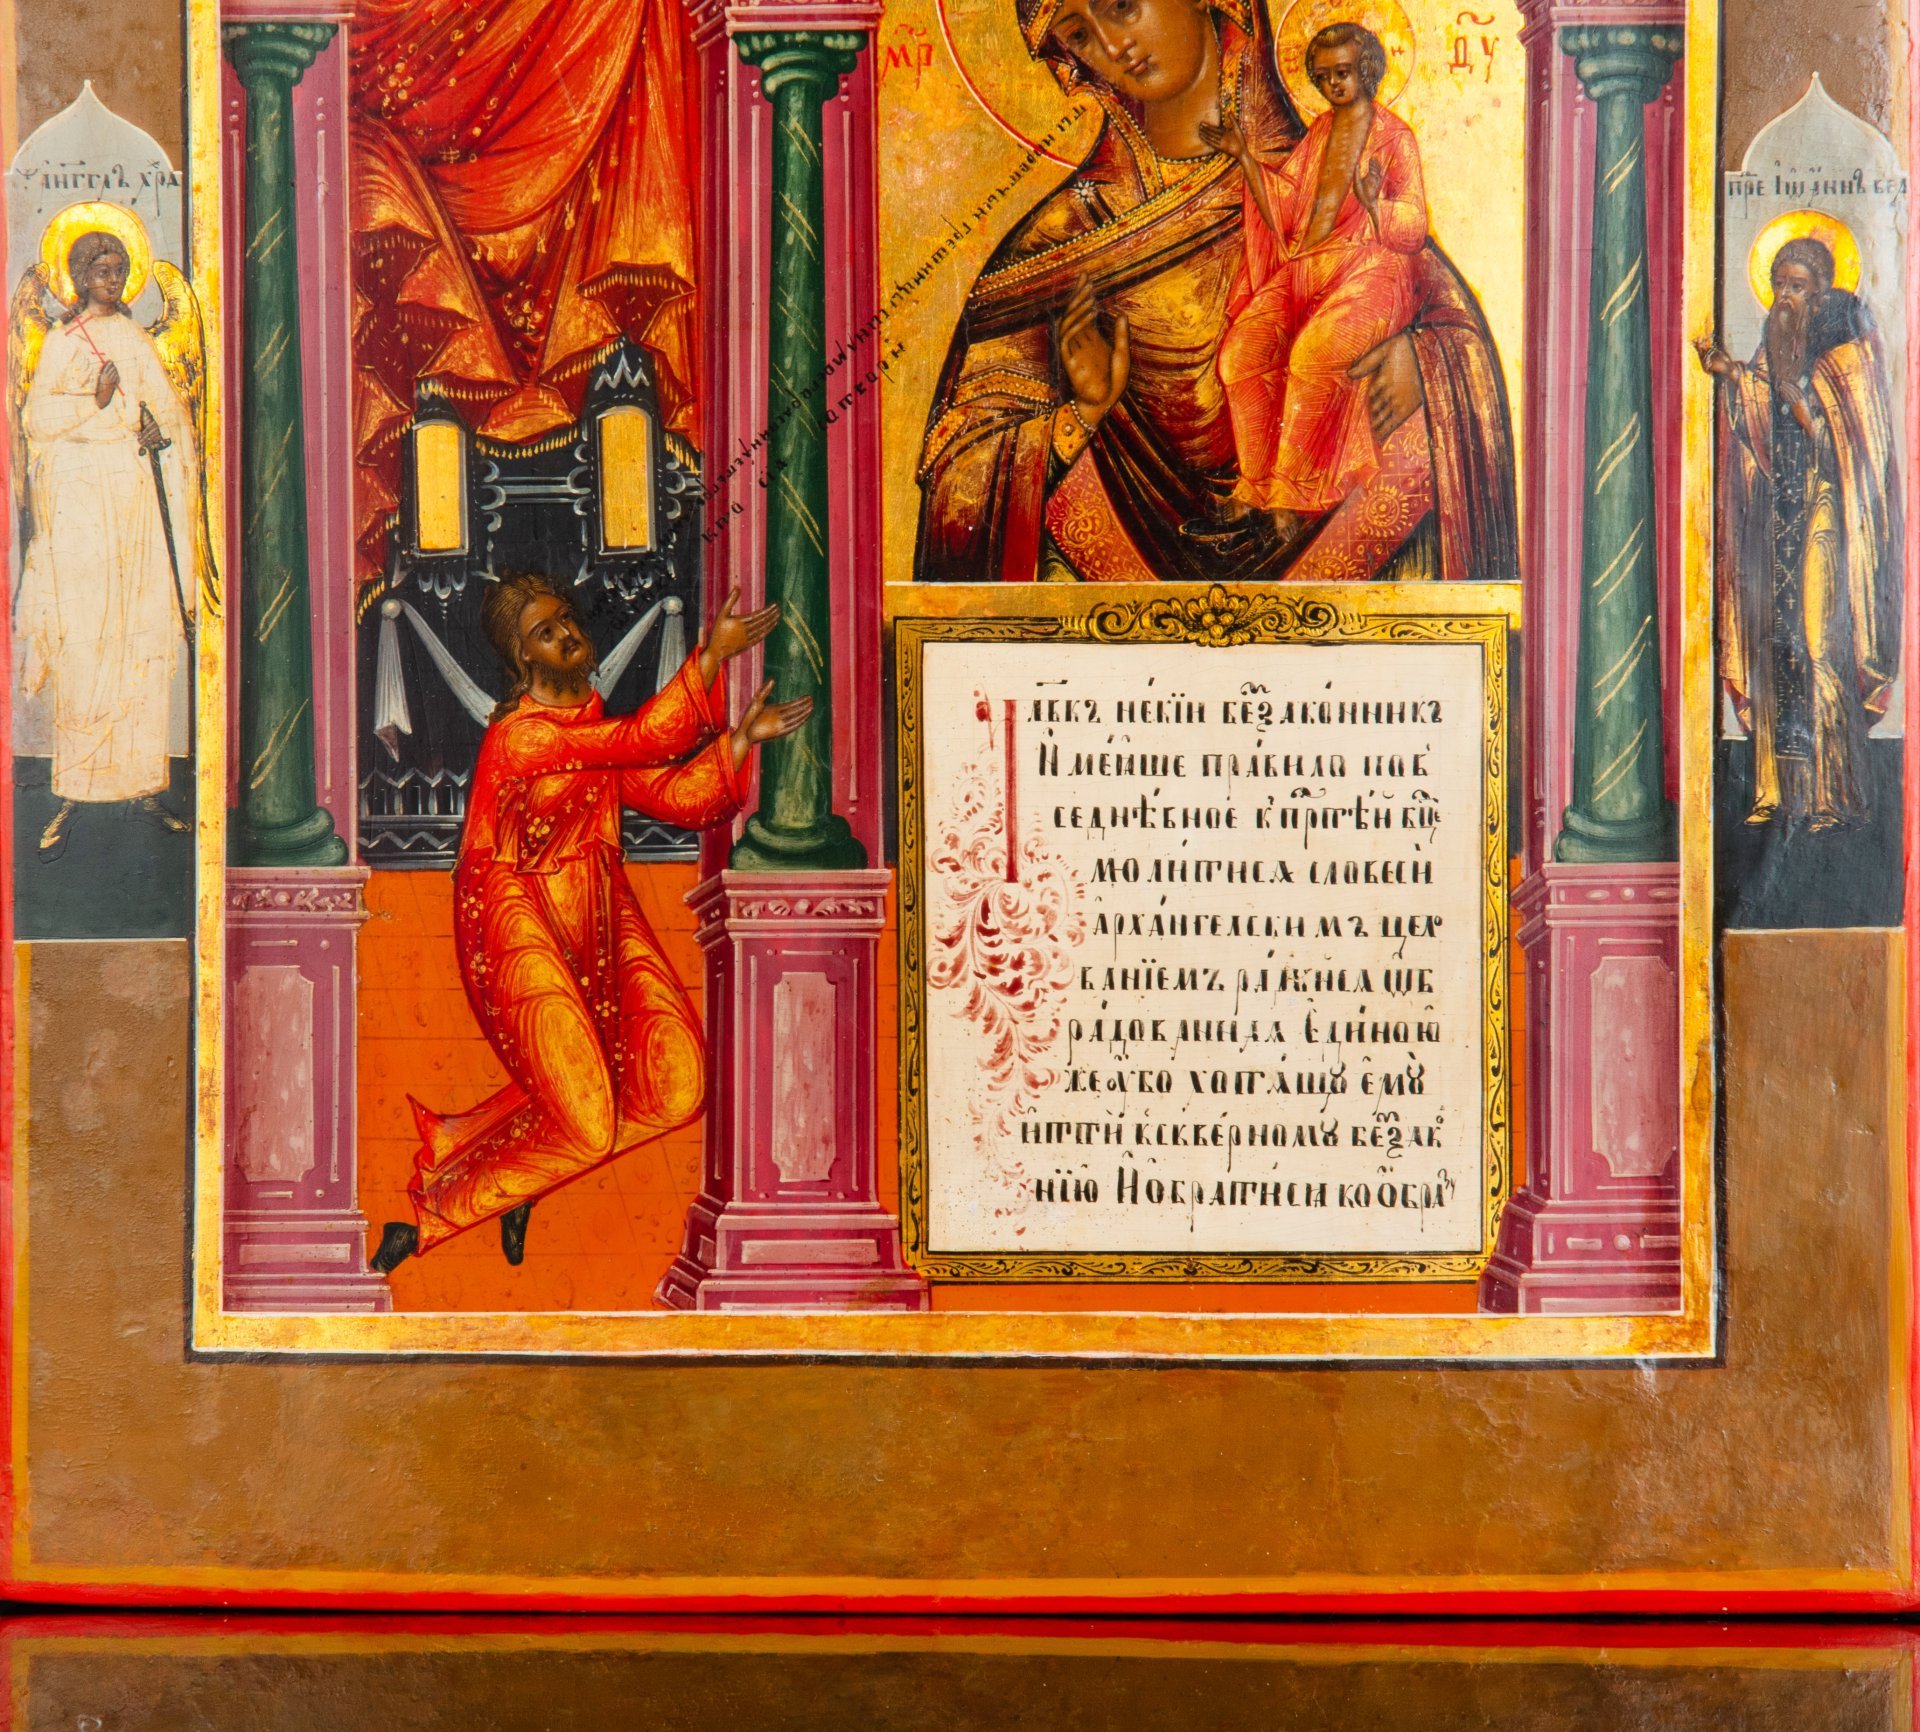 М҃Р Ѳ҃У
А҆НГ҃ГЛЪ ХРА
ПРЕ ІѠАННЪ БЕЛ
ЧЛ҃ВКЪ НЕ́КІ́Й БЕЗ̾ЗАКО́ННИКЪ
И҆МЕ́ЯШЕ ПРА́ВИЛО ПОВ
СЕДНѢ́ВНОЕ К ПР҃ТѢЙ БЦ҃Е
МОЛИ́ТИСѦ СЛОВЕСИ
А҆РХА́НГЕЛСКИМЪ ЦЕЛО
ВАНІ́ЕМЪ РА́ДУЙСѦ Ѡ҆Б
РА́ДОВАННАѦ Е҆ДИ́НОЮ
ЖЕ ОУ҆БО ХОТѦ́ЩꙊ Е҆МꙊ̀
И҆ТТИ́ К СКВЕ́РНОМꙊ БЕЗ̾ЗАКО
НІ́Ю И҆ Ѡ҆БРАТИ́СѦ КО Ѻ҆́БРАЗУ